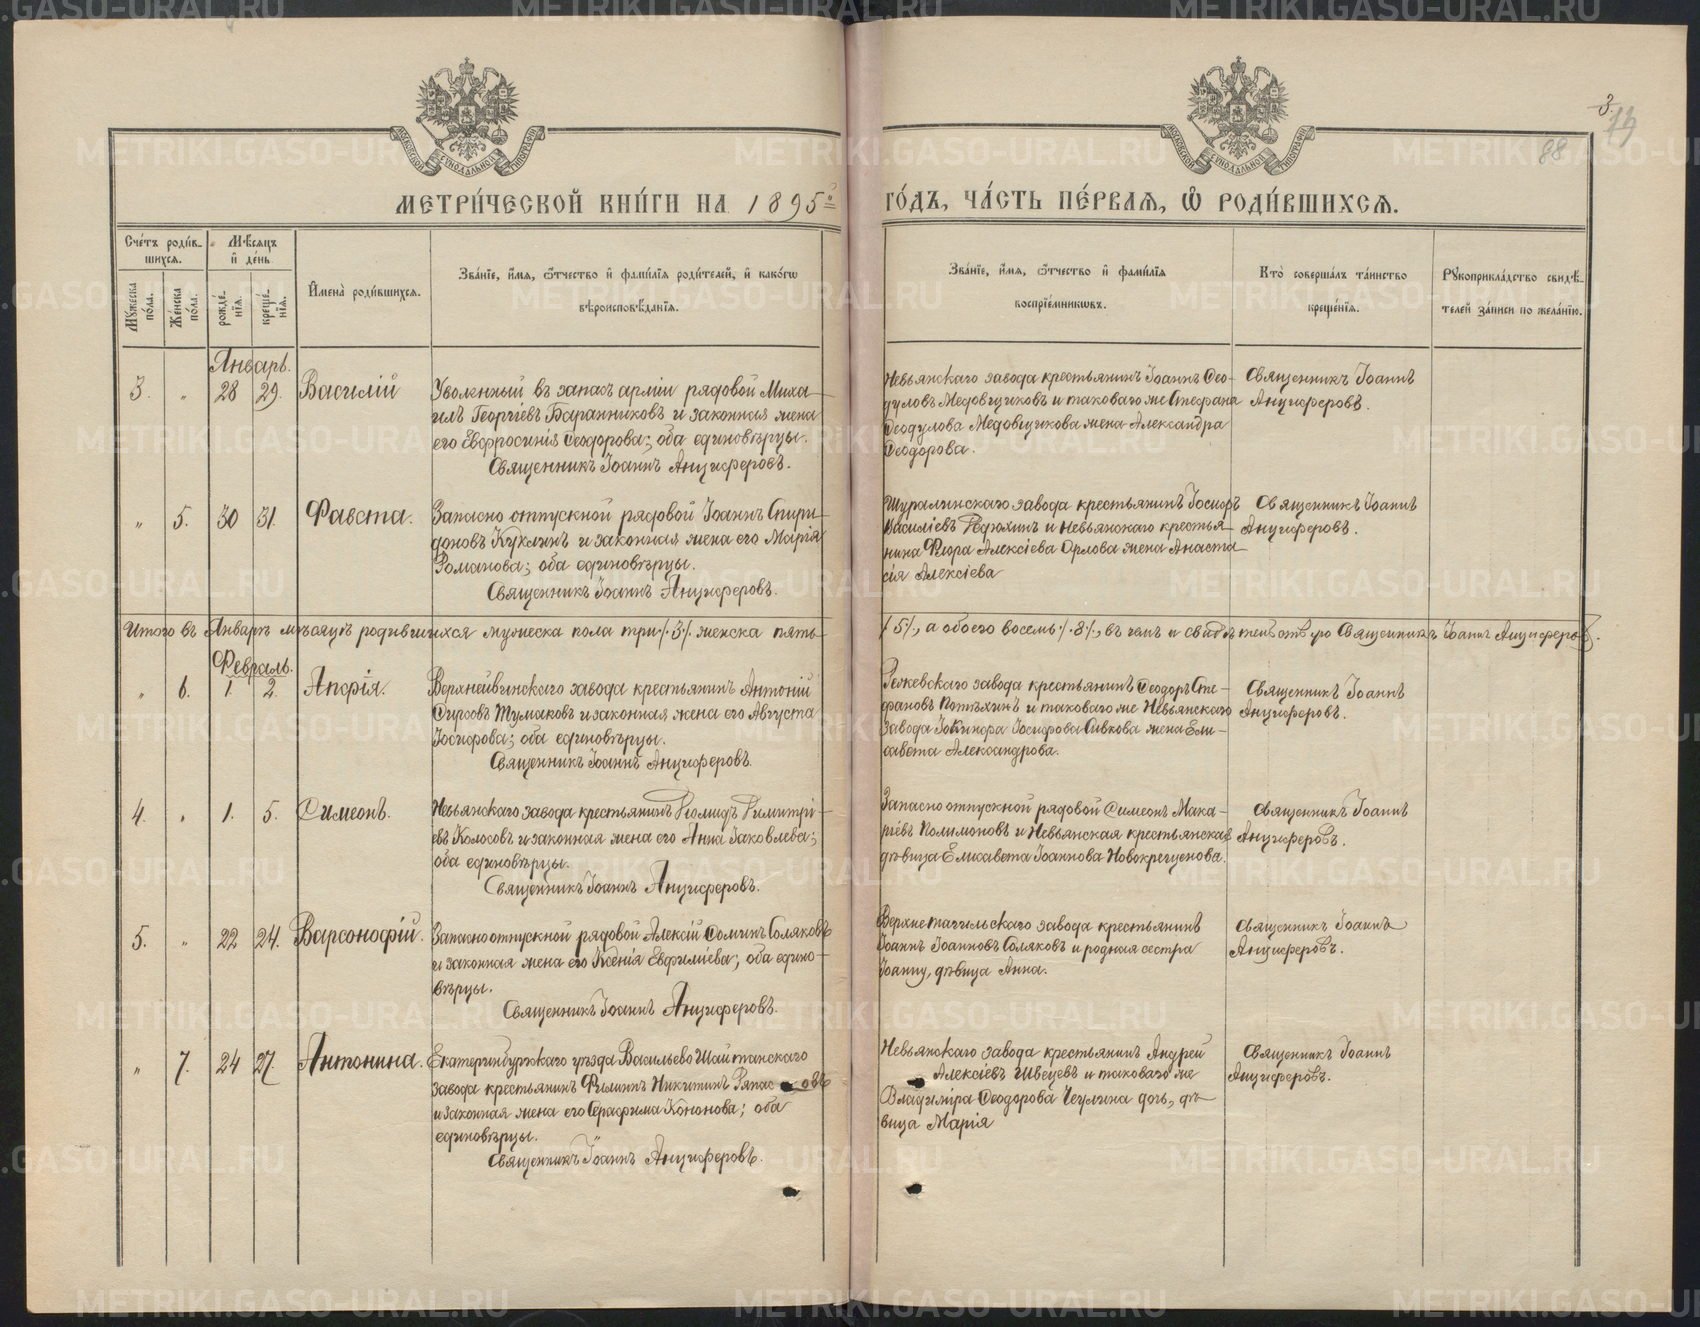 3.
13
88
МЕТРИ́ЧЕСКОЙ КНИ́ГИ НА 1895й
ГО́ДЪ, ЧА́СТЬ ПЕ́РВАѦ, Ѽ РОДИ́ВШИХСѦ.
Сче́тъ роди́в-
шихсѧ.
Мѣ́сяцъ
и҆ де́нь
Мꙋ́жеска по́ла.
Же́нска по́ла.
рожде́-нїѧ.
креще́-нїѧ.
И҆мена̀ роди́вшихсѧ.
Зва́нїе, и҆́мѧ, ѻ҆́тчество и҆ фами́лїѧ роди́телей, и҆ како́гѡ
вѣроисповѣ́данїѧ.
Зва́нїе, и҆́мѧ, ѻ҆́тчество и҆ фами́лїѧ
воспрїе́мникѡвъ.
Кто̀ соверша́лъ та́инство
креще́нїѧ.
Рꙋкоприкла́дство свидѣ́-
телей за́писи по жела́нїю.
Январь.
3. " 28 29. Василій
Уволенный въ запасъ арміи рядовой Миха-
илъ Георгіевъ Баранниковъ и законная жена
его Евфросинія Ѳеодорова; оба единовѣрцы.
Священникъ Іоаннъ Анциферовъ.
Невьянскаго завода крестьянинъ Іоаннъ Ѳео-
дуловъ Медовщиковъ и таковаго же Стефана
Ѳеодулова Медовщикова жена Александра
Ѳеодорова.
Священникъ Іоаннъ
Анциферовъ.
" 5. 30 31. Фавста.
Запасно отпускной рядовой Іоаннъ Спири-
доновъ Кухлинъ и законная жена его Марія
Романова; оба единовѣрцы.
Священникъ Іоаннъ Анциферовъ.
Шуралинскаго завода крестьянинъ Іосифъ
Василіевъ Редюхинъ и Невьянскаго крестья-
нина Флора Алексіева Орлова жена Анаста-
сія Алексіева
Священникъ Іоаннъ
Анциферовъ.
Итого въ Январѣ мѣсяцѣ родившихся мужеска пола три /.3/. женска пять
/5/., а обоего восемь /.8/., въ чемъ и свидѣтельствую Священникъ Іоаннъ Анциферовъ.
Февраль.
" 6. 1. 2. Апфія.
Верхнейвинскаго завода крестьянинъ Антоній
Ѳирсовъ Тумаковъ и законная жена его Августа
Іосифова; оба единовѣрцы.
Священникъ Іоаннъ Анциферовъ.
Режевскаго завода крестьянинъ Ѳеодоръ Сте-
фановъ Потѣхинъ и таковаго же Невьянскаго
завода Іоакинфа Іосифова Сивкова жена Ели-
савета Александрова.
Священникъ Іоаннъ
Анциферовъ.
4. " 1. 5. Симеонъ.
Невьянскаго завода крестьянинъ Димитрі-
евъ Колосовъ и законная жена его Анна Іаковлева;
оба единовѣрцы.
Священникъ Іоаннъ Анциферовъ.
Запасно отпускной рядовой Симеонъ Мака-
ріевъ Полимоновъ и Невьянская крестьянская
дѣвица Елисавета Іоаннова Новокрещенова.
Священникъ Іоаннъ
Анциферовъ.
5. " 22 24. Варсонофій.
Запасно отпускной рядовой Алексій Ѳоминъ Соляковъ
и законная жена его Ксенія Евфиміева; оба едино-
вѣрцы.
Священникъ Іоаннъ Анциферовъ.
Верхнетагильскаго завода крестьянинъ
Іоаннъ Іоанновъ Соляковъ и родная сестра
Іоанну, дѣвица Анна.
Священникъ Іоаннъ
Анциферовъ.
" 7. 24 27. Антонина.
Екатеринбургскаго уѣзда Васильево Шайтанскаго
завода крестьянинъ Филиппъ Никитинъ
и законная жена его Серафима Кононова; оба
единовѣрцы.
Священникъ Іоаннъ Анциферовъ.
Невьянскаго завода крестьянинъ Андрей
Алексіевъ Швецевъ и таковаго же
Владиміра Ѳеодорова Чеулина дочь, дѣ-
вица Марія
Священникъ Іоаннъ
Анциферовъ.
METRIKI.GASO-URAL.RU